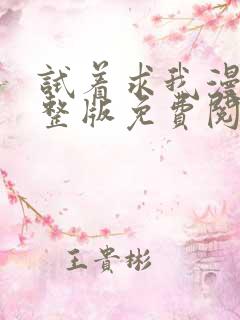 試着求我漫
整版免費閱
王貴彬